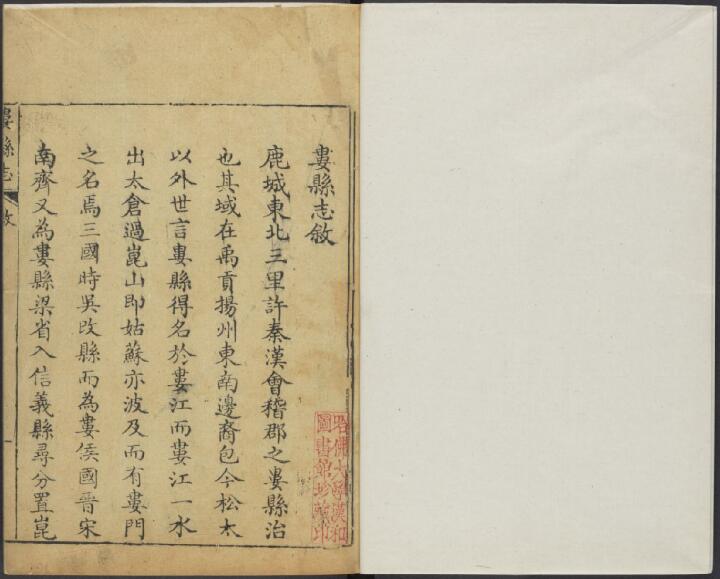 婁縣志敘
鹿城東北三里許秦漢會稽郡之婁縣治
也其域在禹貢揚州東南邊裔包今松太
以外世言婁縣得名於婁江而婁江一水
出太倉過崑山即姑蘇亦波及而有婁門
之名焉三國時吳改縣而為婁侯國晉宋
南齊又為婁縣梁省入信義縣尋分置崑
婁縣志 敘
一
哈佛大學漢和
圖書館珍藏印